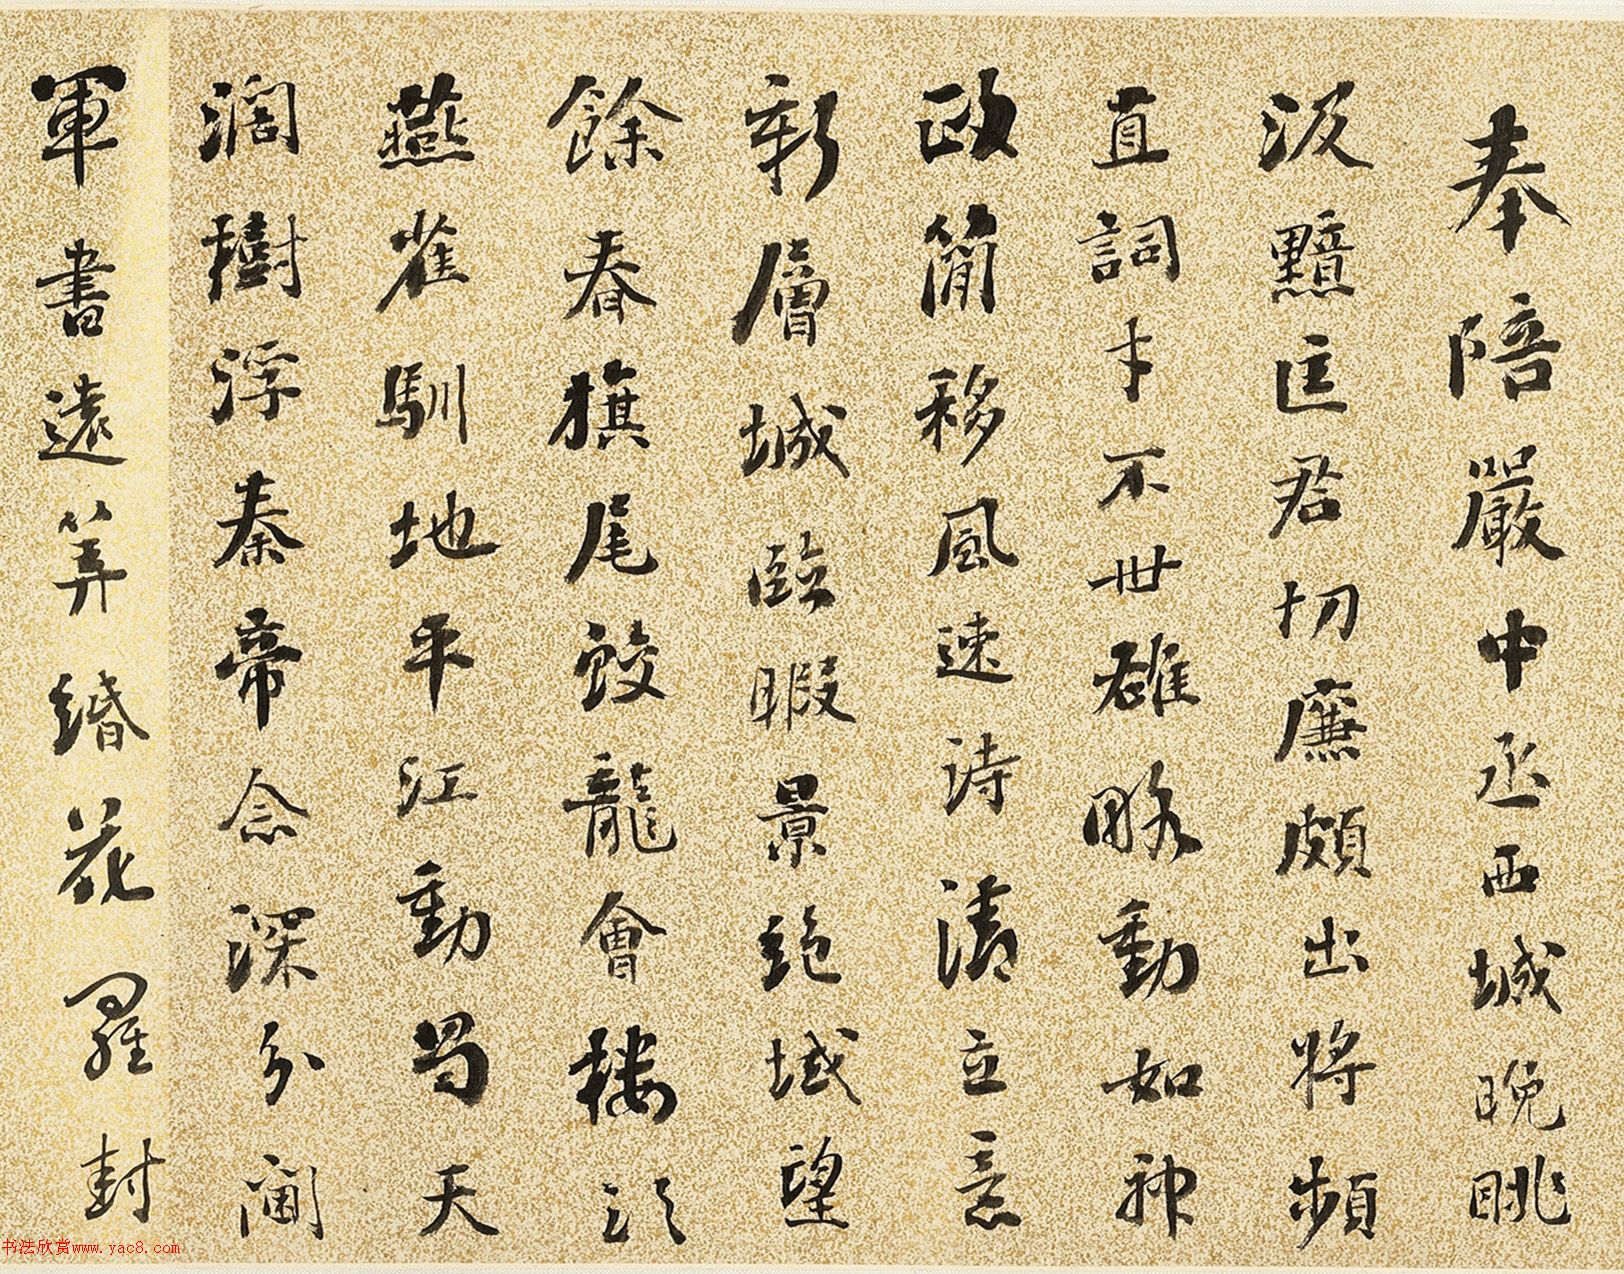 奉陪嚴中丞西城晚眺
汲黯匡君切廉頗出將頻
直詞才不世雄略動如神
政簡移風速詩清立意
新層城臨暇景絕域望
餘春旗尾蛟龍會樓頭
燕雀馴地平江動蜀天
濶樹浮秦帝念深分閫
軍書遠筭緡花羅封
书法欣赏www.yac8.com